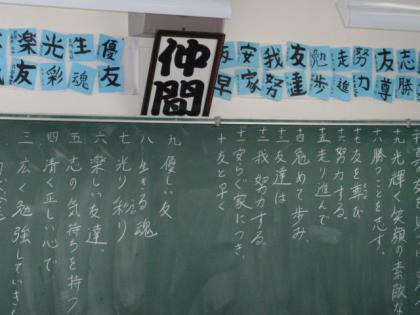 志勝
友尊
努力
走進
勉歩
友達
我努
安家
友早
仲間
優友
生魂
光彩
楽友
十九 光輝く笑顔の素敵な
十八 勝つことを志す。
十七 友を尊び
十六 努力する。
十五 走り進んで
十四 勉めて歩み、
十三 友達は
十二 我努力する
十一 安らぐ家につき、
十 友と早く
九 優しい友
八 生きる魂
七 光り彩り
六 楽しい友達。
五 志の気持ちを持つ
四 清く正しい心で
三 広く勉強していき